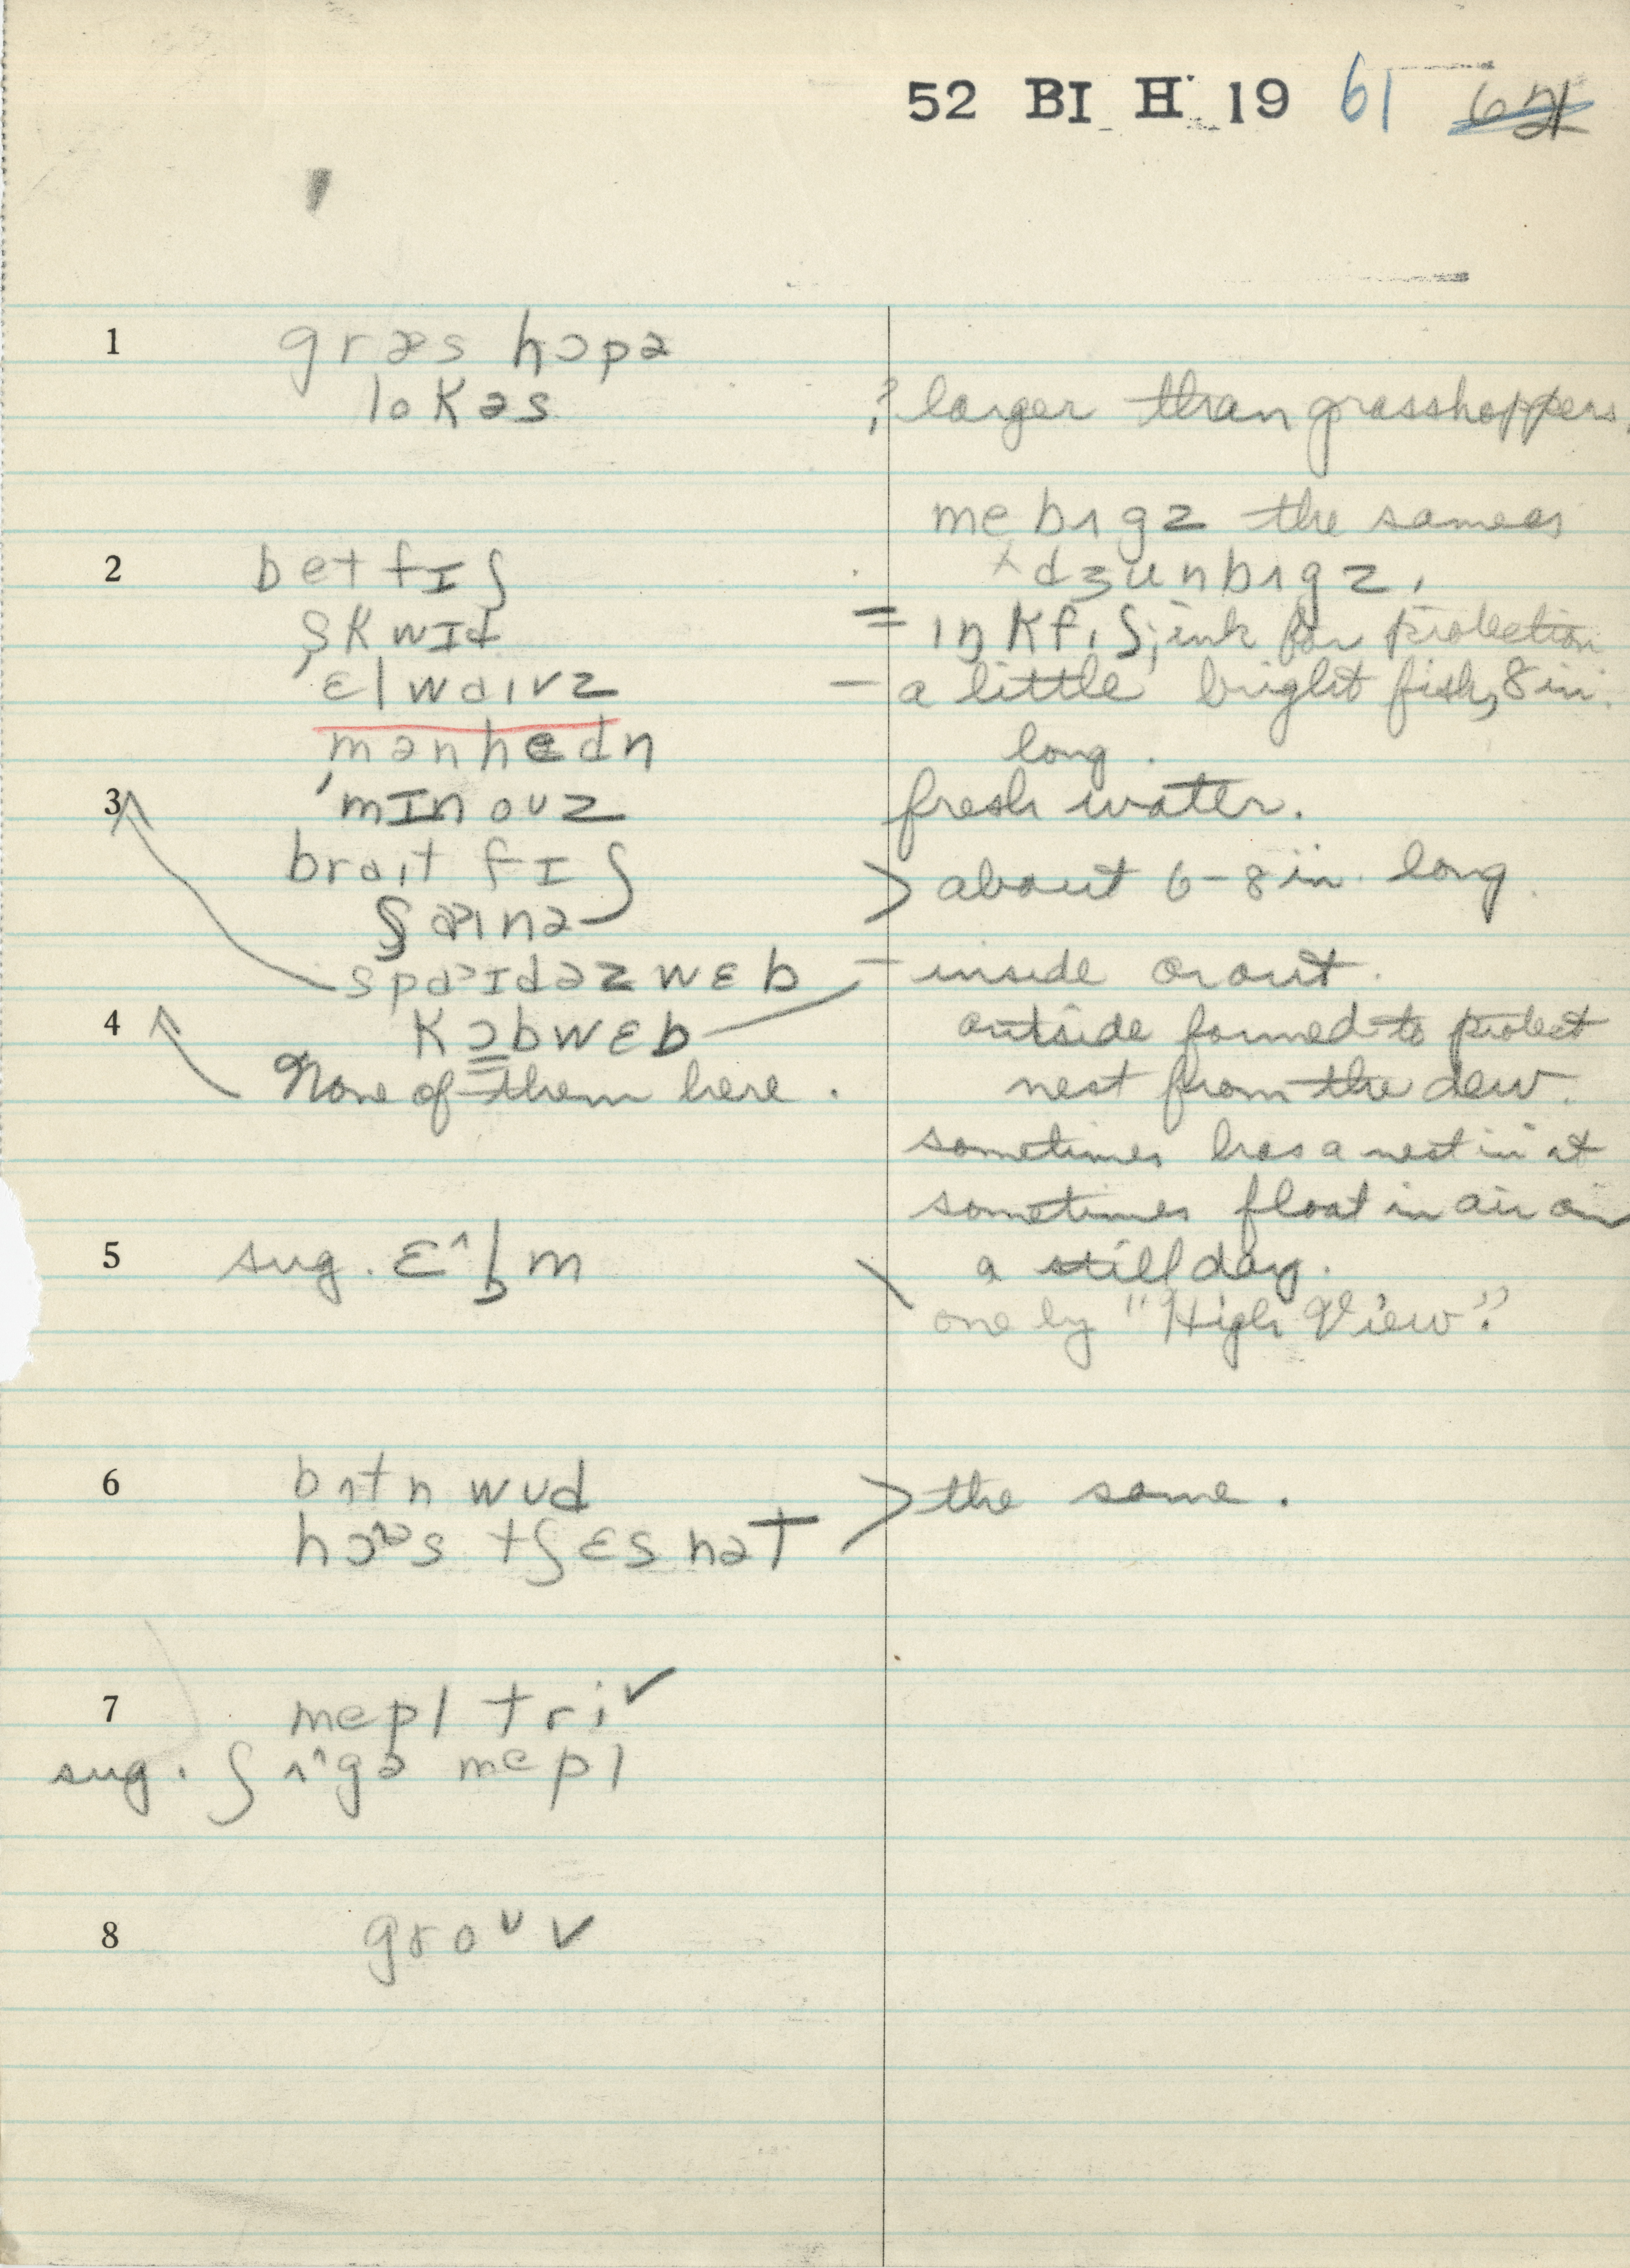 52 BI H 19 61 62
1 græs hɔpə
lokəs ? larger than grasshoppers.
me bʌgz the same as
2 bet fɪʃ × dʒunbʌgz.
skwɪd = ɪŋkfɪʃ; ink for protection
ɛlwɑɪvz – a little bright fish, 8 in.
mənhedn long.
3 mɪnoʊz fresh water.
braɪt fɪʃ > about 6-8 in. long.
ʃaɪnə
spaɪdəz wɛb – inside or out.
4 kɔbwɛb outside formed to protect
None of them here. nest from the dew.
sometimes has a nest in it
sometimes float in air on
5 sug. ɛ^lbm \ a still day.
one by "High View".
6 bʌtn wʊd > the same.
hɔəs tʃɛsnət
7 mepl tri ✓
sug. ʃʌ^gə mepl
8 groʊv